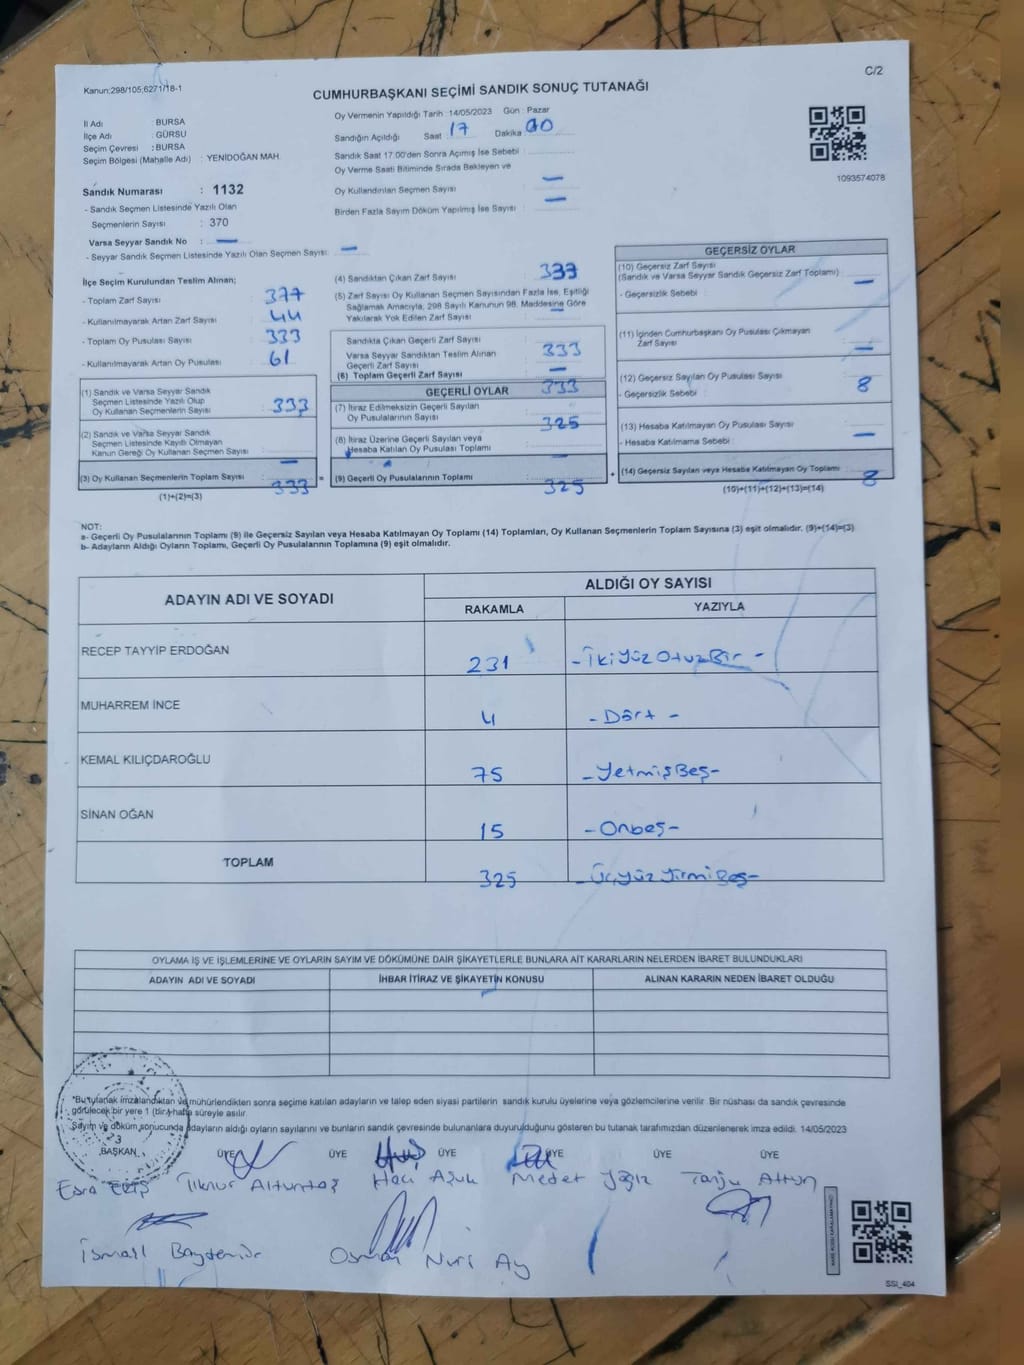 C/2
Kanun:298/105;6271/18-1
CUMHURBAŞKANI SEÇİMİ SANDIK SONUÇ TUTANAĞI
İl Adı BURSA
İlçe Adı GÜRSU
Seçim Çevresi : BURSA
Seçim Bölgesi (Mahalle Adı) : YENİDOĞAN MAH
Sandık Numarası : 1132
- Sandık Seçmen Listesinde Yazılı Olan
Seçmenlerin Sayısı : 370
Varsa Seyyar Sandık No : —
- Seyyar Sandık Seçmen Listesinde Yazılı Olan Seçmen Sayısı: —
Oy Vermenin Yapıldığı Tarih :14/05/2023 Gün : Pazar
Sandığın Açıldığı Saat : 17 Dakika 00
Sandık Saat 17.00'den Sonra Açımış İse Sebebi :
Oy Verme Saati Bitiminde Sırada Bekleyen ve
Oy Kullandırılan Seçmen Sayısı : —
Birden Fazla Sayım Döküm Yapılmış İse Sayısı : —
1093574078
İlçe Seçim Kurulundan Teslim Alınan;
- Toplam Zarf Sayısı : 377
- Kullanılmayarak Artan Zarf Sayısı : 44
- Toplam Oy Pusulası Sayısı : 333
- Kullanılmayarak Artan Oy Pusulası : 61
(1) Sandık ve Varsa Seyyar Sandık
Seçmen Listesinde Yazılı Olup
Oy Kullanan Seçmenlerin Sayısı : 333
(2) Sandık ve Varsa Seyyar Sandık
Seçmen Listesinde Kayıtlı Olmayan
Kanun Gereği Oy Kullanan Seçmen Sayısı : —
(3) Oy Kullanan Seçmenlerin Toplam Sayısı : 333
(1)+(2)=(3)
(4) Sandıktan Çıkan Zarf Sayısı : 333
(5) Zarf Sayısı Oy Kullanan Seçmen Sayısından Fazla İse, Eşitliği
Sağlamak Amacıyla, 298 Sayılı Kanunun 98. Maddesine Göre
Yakılarak Yok Edilen Zarf Sayısı : —
Sandıkta Çıkan Geçerli Zarf Sayısı : 333
Varsa Seyyar Sandıktan Teslim Alınan
Geçerli Zarf Sayısı : —
(6) Toplam Geçerli Zarf Sayısı : 333
GEÇERLİ OYLAR
(7) İtiraz Edilmeksizin Geçerli Sayılan
Oy Pusulalarının Sayısı : 325
(8) İtiraz Üzerine Geçerli Sayılan veya
Hesaba Katılan Oy Pusulası Toplamı : —
= (9) Geçerli Oy Pusulalarının Toplamı : 325
GEÇERSİZ OYLAR
(10) Geçersiz Zarf Sayısı
(Sandık ve Varsa Seyyar Sandık Geçersiz Zarf Toplamı) : —
- Geçersizlik Sebebi :
(11) İçinden Cumhurbaşkanı Oy Pusulası Çıkmayan
Zarf Sayısı : —
(12) Geçersiz Sayılan Oy Pusulası Sayısı : 8
- Geçersizlik Sebebi :
(13) Hesaba Katılmayan Oy Pusulası Sayısı : —
- Hesaba Katılmama Sebebi :
+ (14) Geçersiz Sayılan veya Hesaba Katılmayan Oy Toplamı : 8
(10)+(11)+(12)+(13)=(14)
NOT:
a- Geçerli Oy Pusulalarının Toplamı (9) ile Geçersiz Sayılan veya Hesaba Katılmayan Oy Toplamı (14) Toplamları, Oy Kullanan Seçmenlerin Toplam Sayısına (3) eşit olmalıdır. (9)+(14)=(3)
b- Adayların Aldığı Oyların Toplamı, Geçerli Oy Pusulalarının Toplamına (9) eşit olmalıdır.
ADAYIN ADI VE SOYADI ALDIĞI OY SAYISI
RAKAMLA YAZIYLA
RECEP TAYYİP ERDOĞAN 231 - İkiYüz OtuzBir -
MUHARREM İNCE 4 - Dört -
KEMAL KILIÇDAROĞLU 75 - YetmişBeş -
SİNAN OĞAN 15 - Onbeş -
TOPLAM 325 - Üçyüz YirmiBeş -
OYLAMA İŞ VE İŞLEMLERİNE VE OYLARIN SAYIM VE DÖKÜMÜNE DAİR ŞİKAYETLERLE BUNLARA AİT KARARLARIN NELERDEN İBARET BULUNDUKLARI
ADAYIN ADI VE SOYADI İHBAR İTİRAZ VE ŞİKAYETİN KONUSU ALINAN KARARIN NEDEN İBARET OLDUĞU
*Bu tutanak imzalandıktan ve mühürlendikten sonra seçime katılan adayların ve talep eden siyasi partilerin sandık kurulu üyelerine veya gözlemcilerine verilir. Bir nüshası da sandık çevresinde
görülecek bir yere 1 (bir) hafta süreyle asılır.
Sayım ve döküm sonucunda adayların aldığı oyların sayılarını ve bunların sandık çevresinde bulunanlara duyurulduğunu gösteren bu tutanak tarafımızdan düzenlenerek imza edildi. 14/05/2023
BAŞKAN ÜYE ÜYE ÜYE ÜYE ÜYE ÜYE
Esra İlknur Altuntaş Hacı Aşuk Medet Yağız Tanju Altun
İsmail Baydemir Osman Nuri Ay
SSI_404